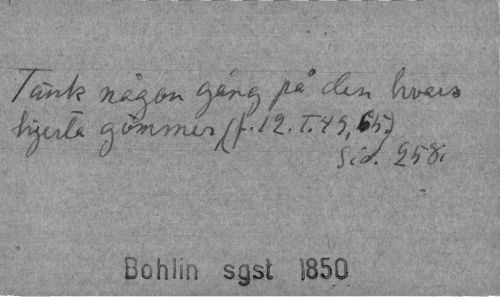 Tänk någon gång på den hvars
hjerta gömmer (f. 12. T. 49, 65.)
Sid. 258.
Bohlin sgst 1850